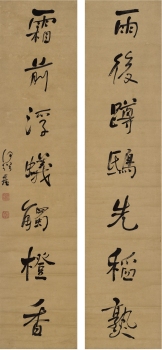 雨後蹲鴟先稻熟
霜前浮蟻觸橙香